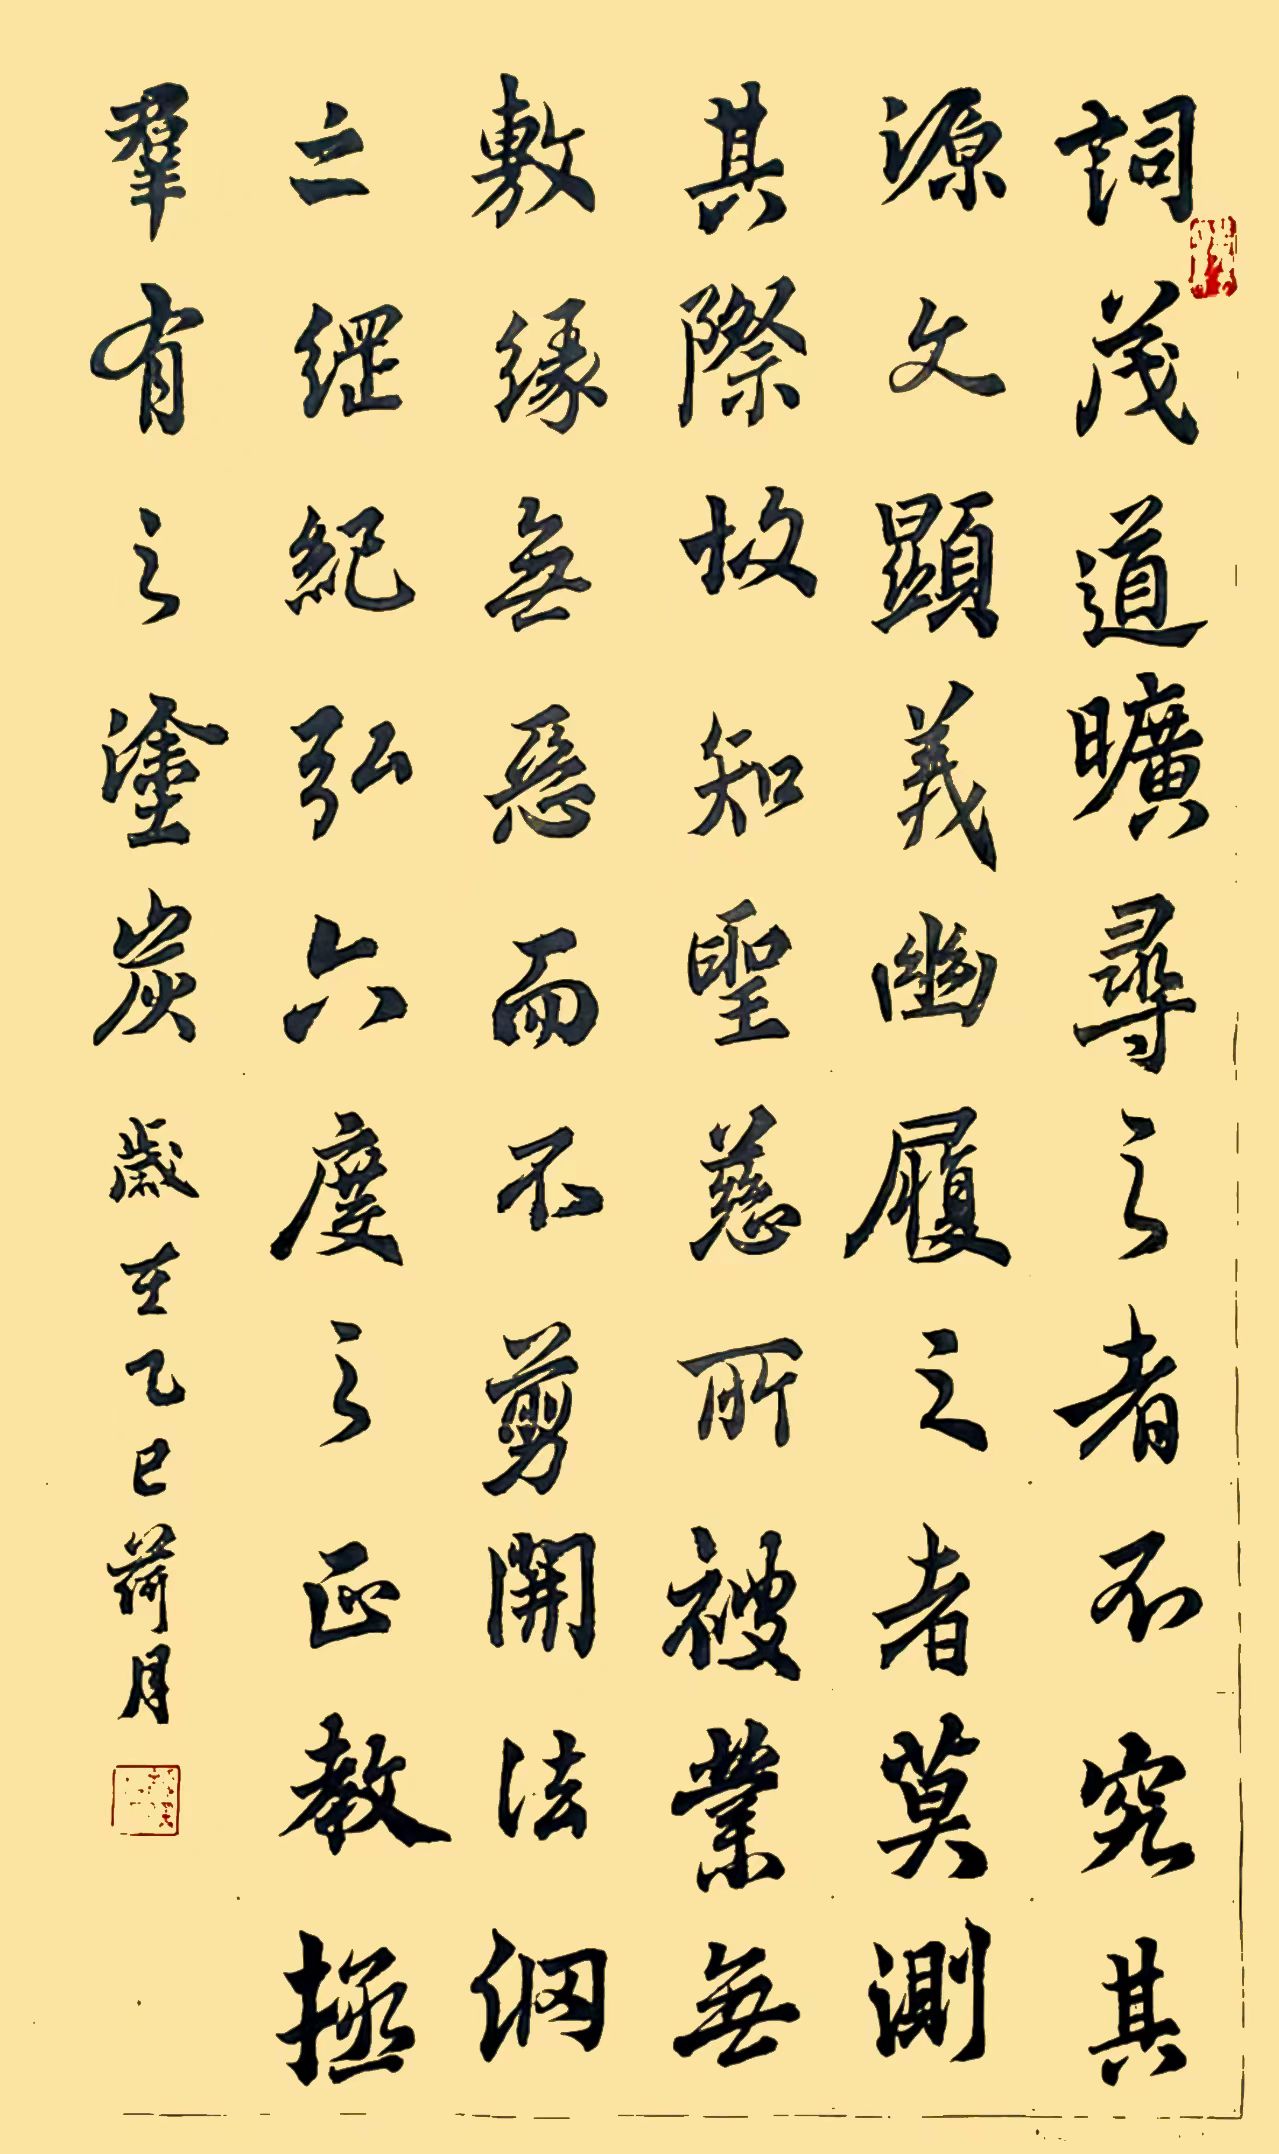 詞茂道曠尋之者不究其
源文顯義幽履之者莫測
其際故知聖慈所被業無
敷緣無惡而不剪開法網
之綱紀弘六度之正教拯
羣有之塗炭歲在乙巳荷月